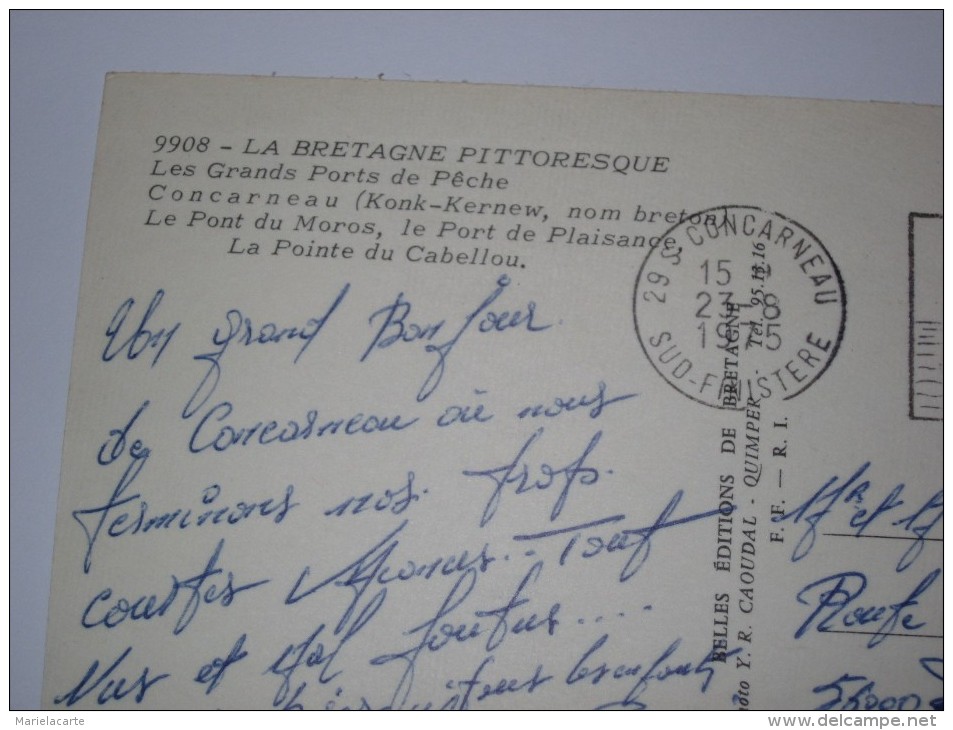 9908 - LA BRETAGNE PITTORESQUE
Les Grands Ports de Pêche
Concarneau (Konk-Kernew, nom breton)
Le Pont du Moros, le Port de Plaisance,
La Pointe du Cabellou.
29 S CONCARNEAU
15
23 - 8
1975
SUD-FINISTERE
Un grand Bonjour
de Concarneau où nous
terminons nos trop
courtes vacances... Tout
Vus et mal foutus...
tous les enfants
BELLES ÉDITIONS DE BRETAGNE
Y. R. CAOUDAL - QUIMPER - Tél. 95.18.16
F. F. — R. I.
Mr et M
Route
Marielacarte
www.delcampe.net